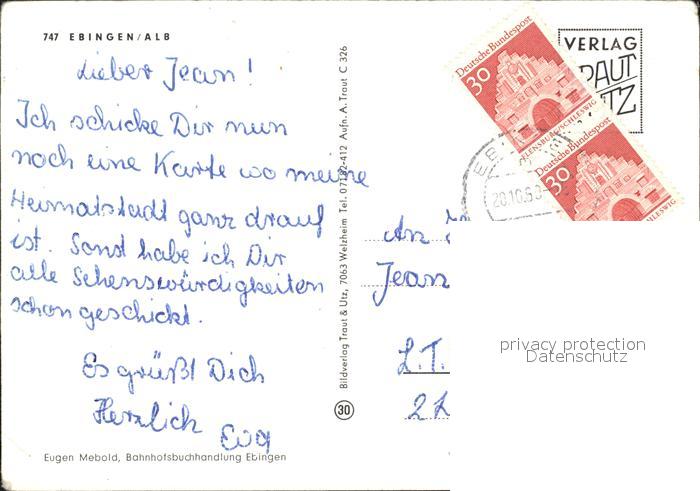 747 EBINGEN/ALB
Lieber Jean!
Ich schicke Dir nun
noch eine Karte wo meine
Heimatstadt ganz drauf
ist. Sonst habe ich Dir
alle Sehenswürdigkeiten
schon geschickt.
Es grüßt Dich
Herzlich
Eugen Mebold, Bahnhofsbuchhandlung Ebingen
Bildverlag Traut & Utz, 7063 Welzheim Tel. 07182-412 Aufn. A. Traut C 326
30
VERLAG
TRAUT
UTZ
Deutsche Bundespost
30
FLENSBURG/SCHLESWIG
Deutsche Bundespost
30
SCHLESWIG
EBI
20.10.69
An
Jean
L.T.
privacy protection
Datenschutz